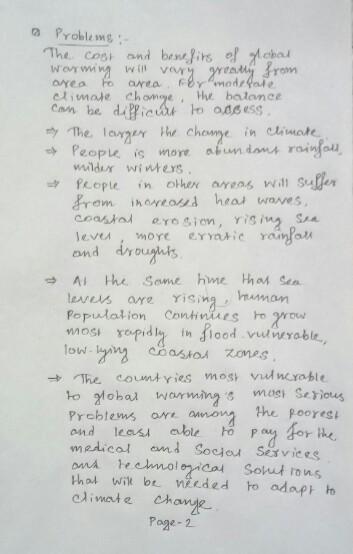 Problems :-
The cost and benefits of global
warming will vary greatly from
area to area. For moderate
climate change, the balance
can be difficult to assess.
⇒ The larger the change in climate.
⇒ People is more abundant rainfall,
milder winters.
⇒ People in other areas will suffer
from increased heat waves,
coastal erosion, rising sea
level, more erratic rainfall
and droughts.
⇒ At the same time that sea
levels are rising, human
Population continues to grow
most rapidly in flood-vulnerable,
low-lying coastal zones.
⇒ The countries most vulnerable
to global warming's most serious
problems are among the poorest
and least able to pay for the
medical and social services
and technological solutions
that will be needed to adapt to
climate change.
Page-2